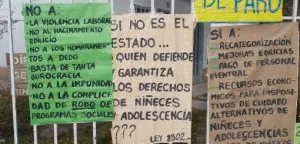 DE PARO
NO A:
- LA VIOLENCIA LABORAL
- NO AL HACINAMIENTO
EDILICIO
- NO A LOS NOMBRAMIEN
TOS A DEDO
- BASTA DE TANTA
BUROCRACIA
- NO A LA IMPUNIDAD
- NO A LA COMPLICI
DAD DE ROBO DE
PROGRAMAS SOCIALES
SI NO ES EL
ESTADO...
QUIEN DEFIENDE
Y GARANTIZA
LOS DERECHOS
DE NIÑECES Y
ADOLESCENCIA
???
LEY 2302.-
SI A:
- RECATEGORIZACIÓN
- MEJORAS EDILICIAS
- PAGO DE PERSONAL
EVENTUAL
- RECURSOS ECONO
MICOS PARA DISPOSI
TIVOS DE CUIDADO
ALTERNATIVOS DE
NIÑECES Y
ADOLESCENCIAS